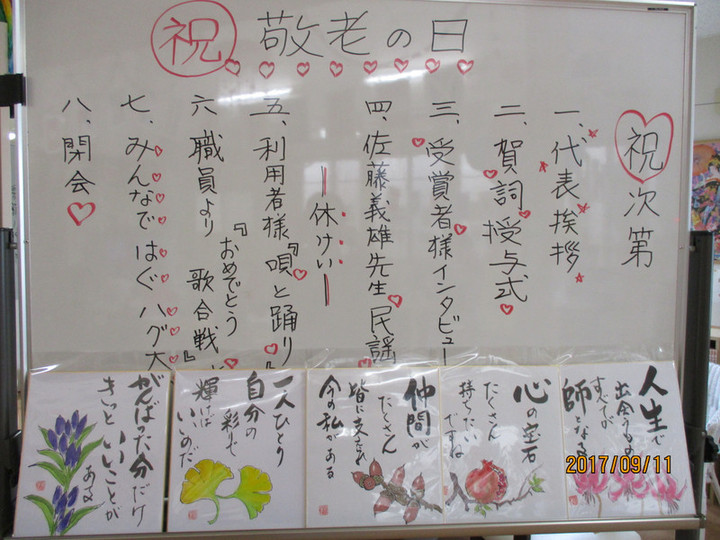 祝 敬老の日
祝次第
一、代表挨拶
二、賀詞授与式
三、受賞者様インタビュー
四、佐藤義雄先生民謡
ー休けいー
五、利用者様『唄と踊り
六、職員より『おめでとう
歌合戦』
七、みんなではぐハグ大
八、閉会
人生で
出会うもの
すべてが
師となる
心の宝石
たくさん
持ちたい
ですね
仲間が
たくさん
皆に支され
今の私がある
一人ひとり
自分の
彩りで
輝けば
いいのだ
がんばった分だけ
きっといいことが
ある
2017/09/11